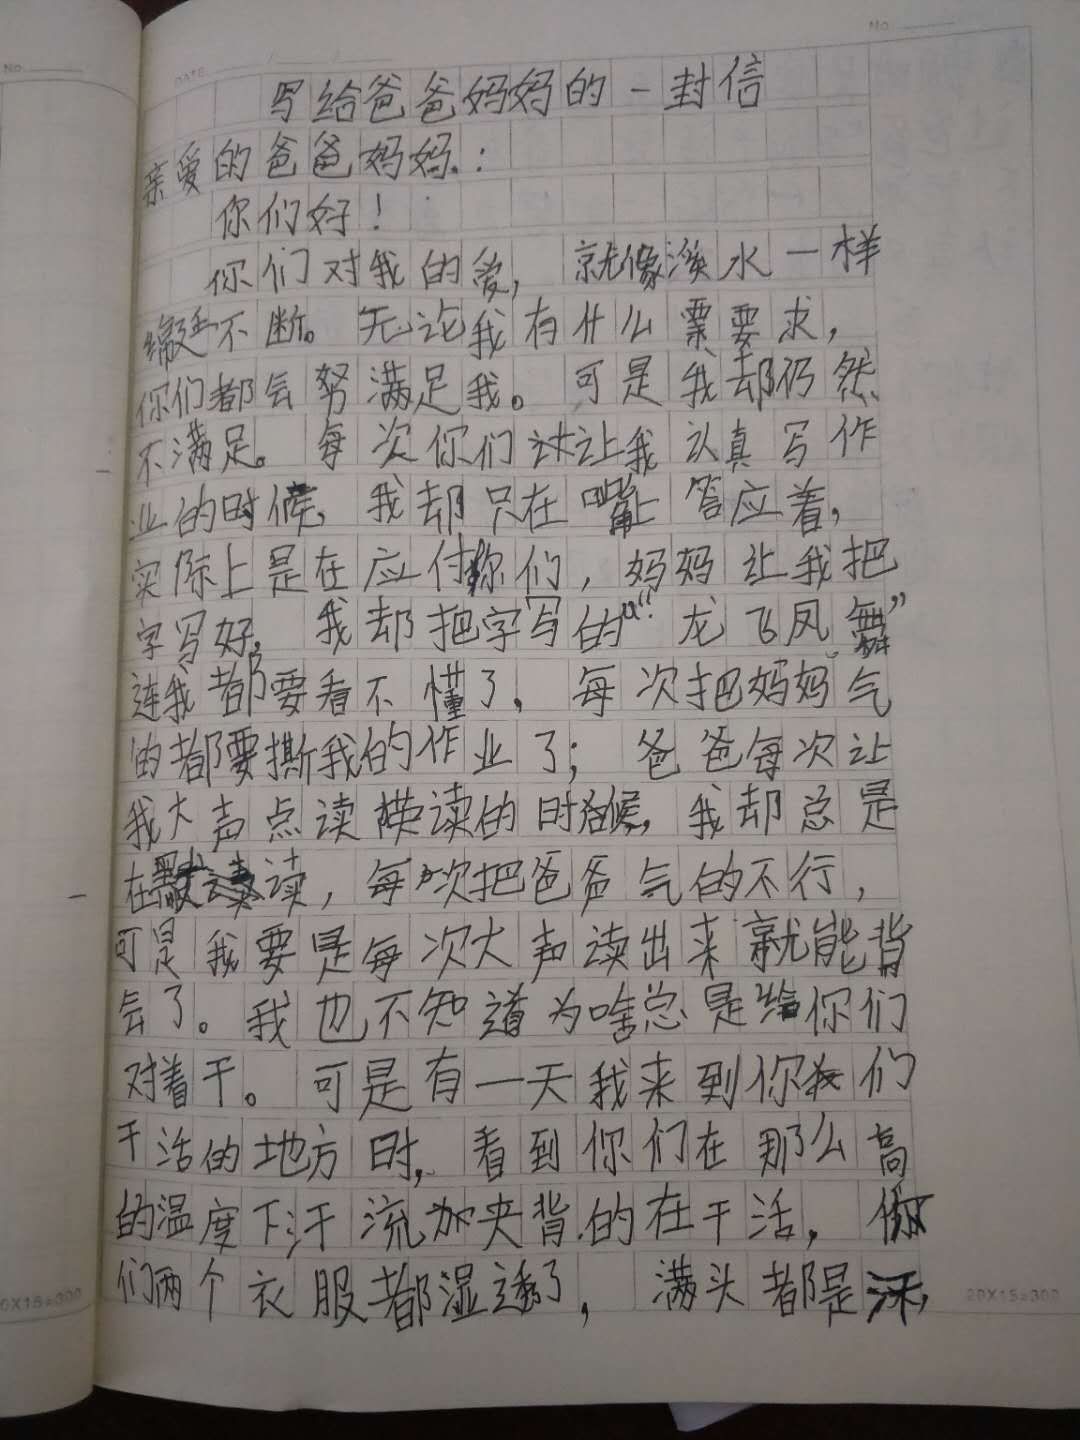 No
No
DATE
写给爸爸妈妈的一封信
亲爱的爸爸妈妈:
你们好!
你们对我的爱,就像溪水一样
绵延不断。无论我有什么需要求,
你们都会努满足我。可是我却仍然
不满足。每次你们让我认真写作
业的时候,我却只在嘴上答应着,
实际上是在应付你们,妈妈让我把
字写好,我却把字写的“龙飞凤舞”
连我都要看不懂了,每次把妈妈气
的都要撕我的作业了;爸爸每次让
我大声点读读的时候,我却总是
在默读,每次把爸爸气的不行,
可是我要是每次大声读出来就能背
会了。我也不知道为啥总是给你们
对着干。可是有一天我来到你们
干活的地方时,看到你们在那么高
的温度下汗流加夹背的在干活,你
们两个衣服都湿透了,满头都是汗,
20X15=300
20X15=300